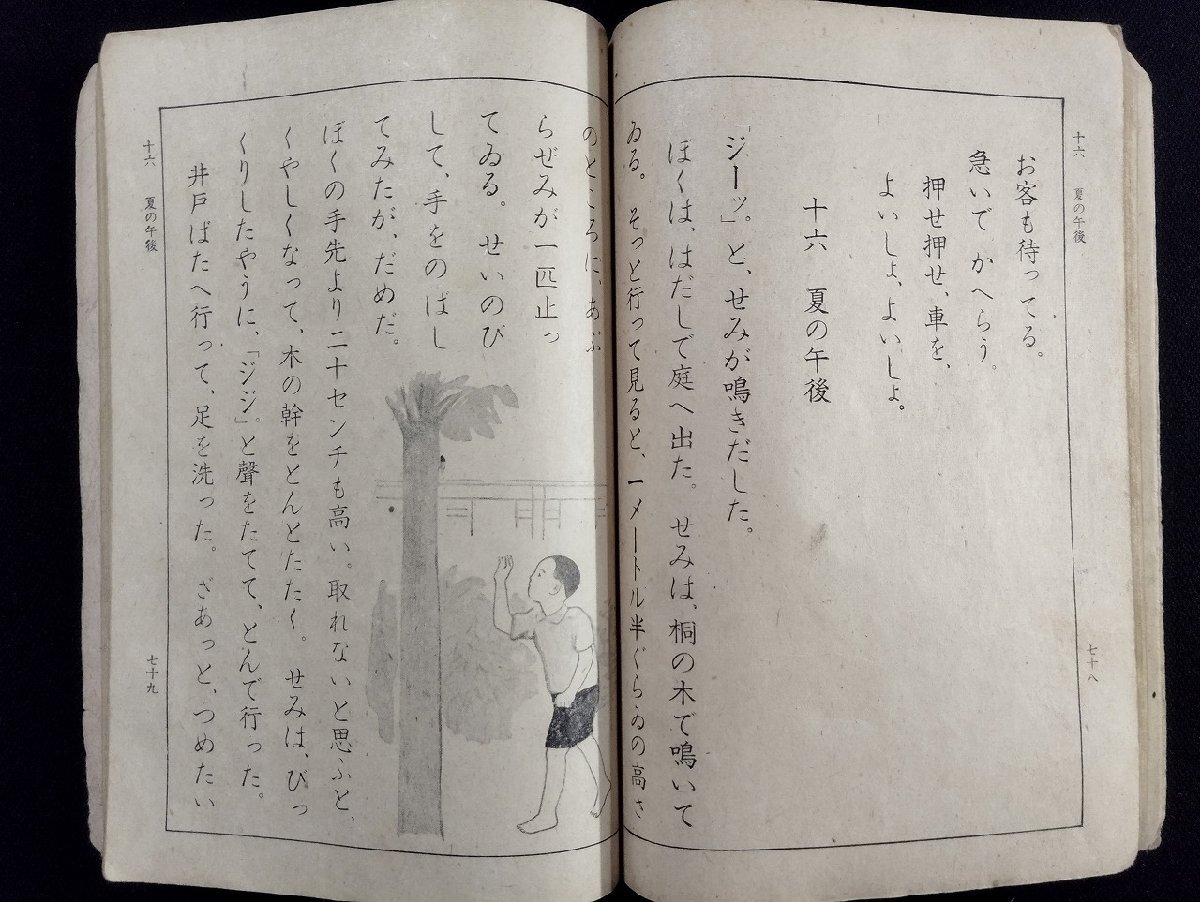 十六 夏の午後
お客も待ってる。
急いで かへらう。
押せ押せ、車を、
よいしょ、よいしょ。
十六 夏の午後
「ジーッ。」と、せみが鳴きだした。
ぼくは、はだしで庭へ出た。せみは、桐の木で鳴いて
ゐる。そっと行って見ると、一メートル半ぐらゐの高さ
七十八
のところに、あぶ
らぜみが一匹止っ
てゐる。せいのび
して、手をのばし
てみたが、だめだ。
ぼくの手先より二十センチも高い。取れないと思ふと、
くやしくなって、木の幹をとんとたたく。せみは、びっ
くりしたやうに、「ジジ。」と聲をたてて、とんで行った。
井戸ばたへ行って、足を洗った。ざあっと、つめたい
十六 夏の午後
七十九